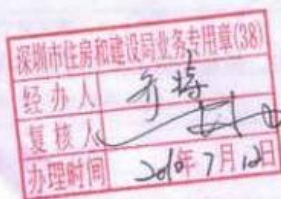 深圳市住房和建设局业务专用章(38)
经办人
复核人
办理时间 2010年7月12日